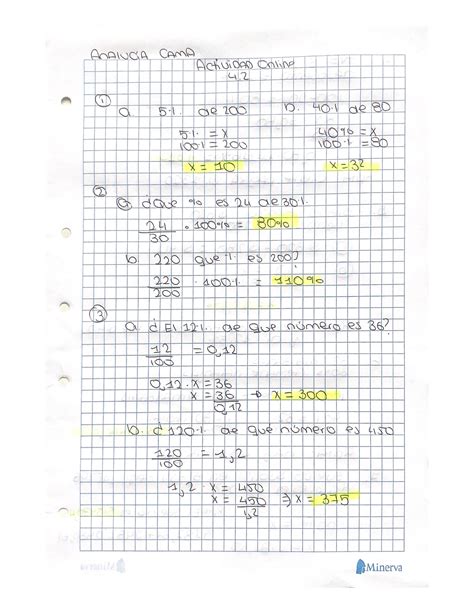 ANALUCIA CAMA
Actividad Online
4.2
1
a. 5% de 200 b. 40% de 80
5% = x 40% = x
100% = 200 100% = 80
x = 10 x = 32
2
a ¿Que % es 24 de 30%
24/30 · 100% = 80%
b 220 que % es 200?
220/200 · 100% = 110%
3
a ¿El 12% de que número es 36?
12/100 = 0,12
0,12 · x = 36
x = 36/0,12 → x = 300
b. ¿120% de que número es 450
120/100 = 1,2
1,2 · x = 450
x = 450/1,2 ⇒ x = 375
Minerva